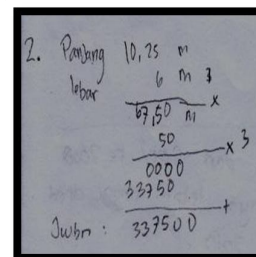 2. Panjang 10,25 m
lebar 6 m 3
67,50 m x
50
x 3
0000
33750
+
Jwbn : 337500